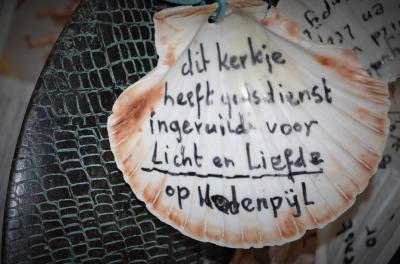 dit kerkje
heeft godsdienst
ingeruild voor
Licht en Liefde
op Hodenpijl